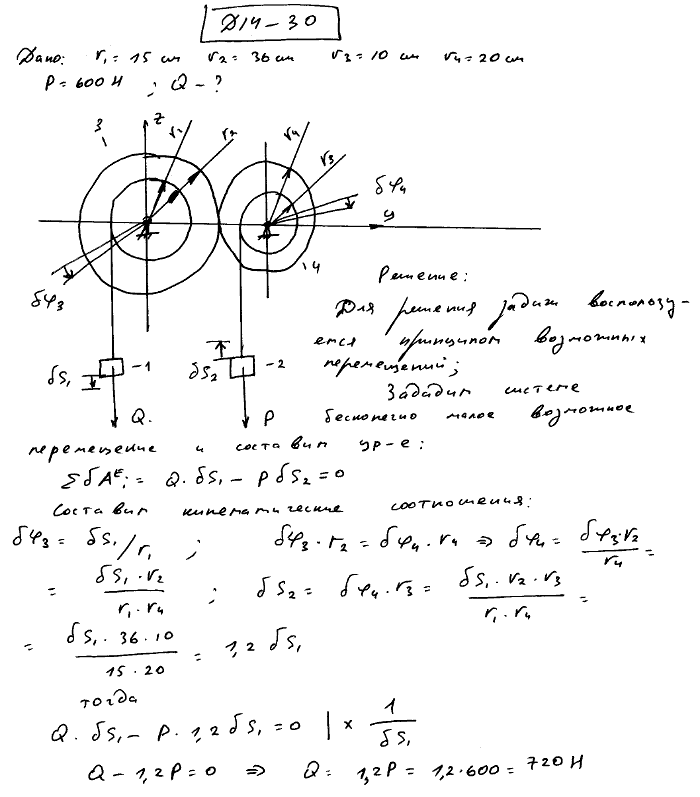 Д14-30
Дано: r₁ = 15 см r₂ = 36 см r₃ = 10 см r₄ = 20 см
P = 600 Н ; Q - ?
3 z r₁ r₂ r₄ r₃
δφ₄
y
δφ₃
4
Решение:
Для решения задачи воспользу-
емся принципом возможных
δS₁ - 1 δS₂ - 2 перемещений;
Зададим системе
Q. P бесконечно малое возможное
перемещение и составим ур-е:
ΣδAᴱᵢ = Q·δS₁ - PδS₂ = 0
Составим кинематические соотношения:
δφ₃ = δS₁/r₁ ; δφ₃·r₂ = δφ₄·r₄ ⇒ δφ₄ = δφ₃·r₂/r₄ =
= δS₁·r₂/r₁·r₄ ; δS₂ = δφ₄·r₃ = δS₁·r₂·r₃/r₁·r₄ =
= δS₁·36·10/15·20 = 1,2 δS₁
тогда
Q·δS₁ - P·1,2δS₁ = 0 | × 1/δS₁
Q - 1,2P = 0 ⇒ Q = 1,2P = 1,2·600 = 720 Н